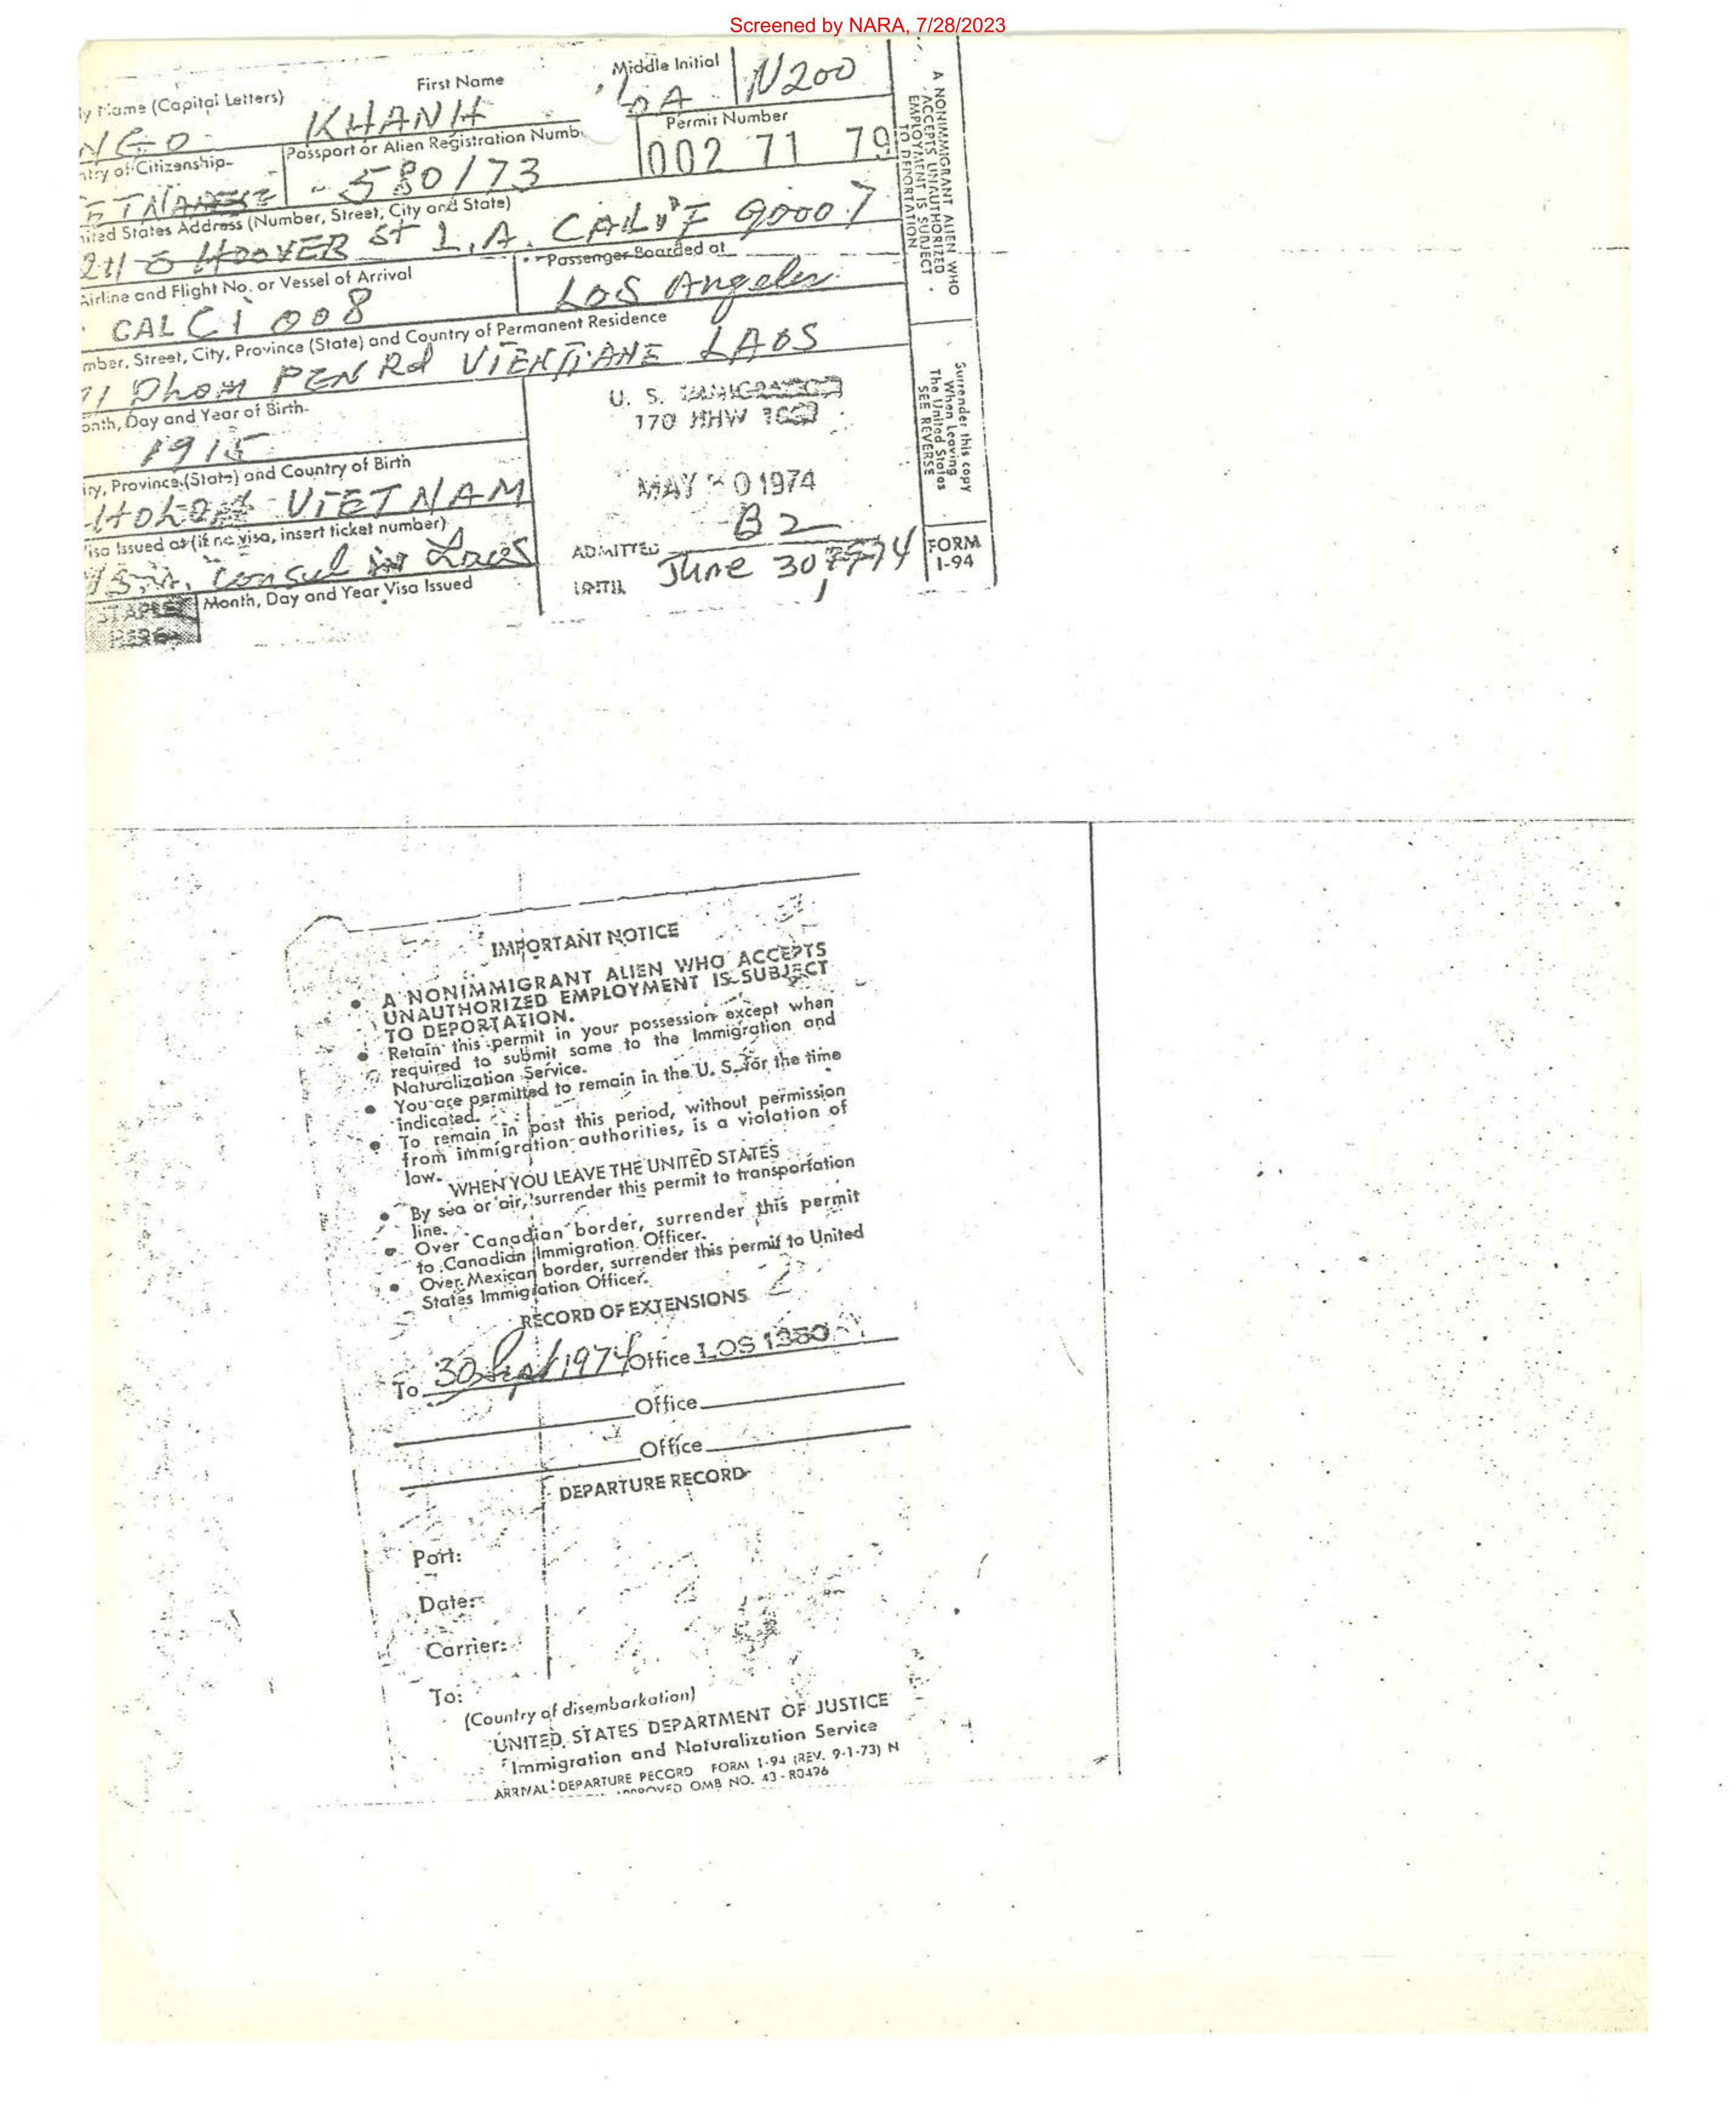 Screened by NARA, 7/28/2023
ly Name (Capital Letters) First Name Middle Initial
NGO KHANH N200
ntry of Citizenship Passport or Alien Registration Numb Permit Number
ETNAMESE 580/73 002 71 79
nited States Address (Number, Street, City and State)
HOOVER St L.A. CALIF 90007
Airline and Flight No. or Vessel of Arrival Passenger Boarded at
CAL CI 008 Los Angeles
mber, Street, City, Province (State) and Country of Permanent Residence
PEN Rd VIENTIANE LAOS
onth, Day and Year of Birth
1915
U. S. IMMIGRATION
170 HHW
ity, Province (State) and Country of Birth
VIETNAM
MAY 30 1974
isa Issued at (if no visa, insert ticket number)
Consul in Laos
ADMITTED B2
UNTIL June 30, 1974
STAPLE
HERE
Month, Day and Year Visa Issued
A NONIMMIGRANT ALIEN WHO
ACCEPTS UNAUTHORIZED
EMPLOYMENT IS SUBJECT
TO DEPORTATION
Surrender this copy
When Leaving
The United States
SEE REVERSE
FORM
I-94
IMPORTANT NOTICE
• A NONIMMIGRANT ALIEN WHO ACCEPTS
UNAUTHORIZED EMPLOYMENT IS SUBJECT
TO DEPORTATION.
• Retain this permit in your possession except when
required to submit same to the Immigration and
Naturalization Service.
• You are permitted to remain in the U. S. for the time
indicated.
• To remain in past this period, without permission
from immigration authorities, is a violation of
law.
WHEN YOU LEAVE THE UNITED STATES
• By sea or air, surrender this permit to transportation
line.
• Over Canadian border, surrender this permit
to Canadian Immigration Officer.
• Over Mexican border, surrender this permit to United
States Immigration Officer.
RECORD OF EXTENSIONS
To 30 Sept 1974 Office LOS 1380
Office
Office
DEPARTURE RECORD
Port:
Date:
Carrier:
To:
(Country of disembarkation)
UNITED STATES DEPARTMENT OF JUSTICE
Immigration and Naturalization Service
ARRIVAL-DEPARTURE RECORD FORM I-94 (REV. 9-1-73) N
APPROVED OMB NO. 43-R0496